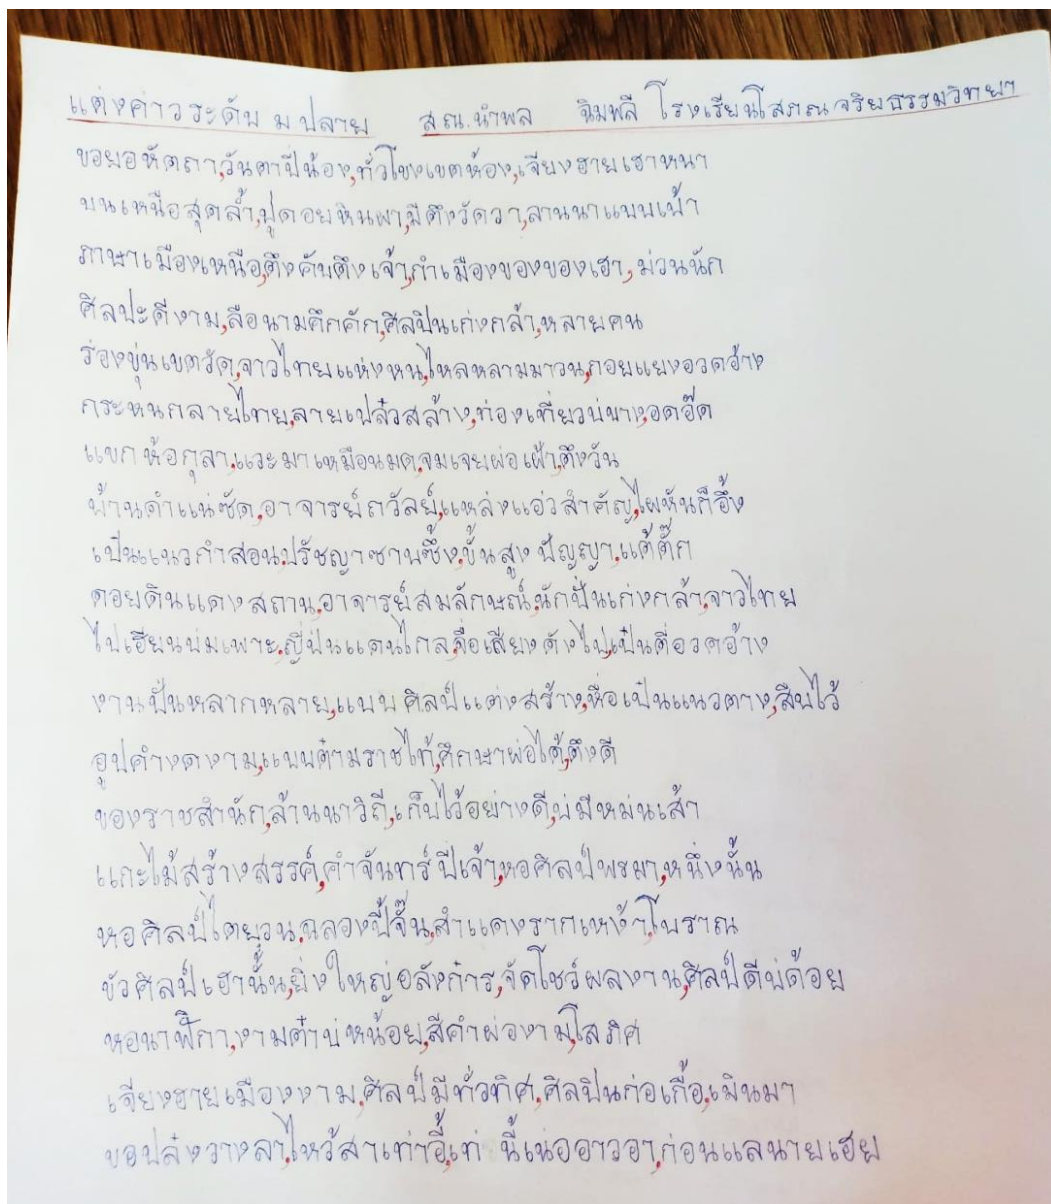 แต่งค่าวระดับ ม.ปลาย สณ.นำพล ฉิมพลี โรงเรียนโสภณจริยธรรมวิทยา
ขอยอหัตถา,วันตาปี่น้อง,ทั่วโขงเขตห้อง,เจียงฮายเฮาหนา
บนเหนือสุดล้ำ,ปูดอยหินผา,มีตึงวัดวา,ลานนาแบบเบ้า
ภาษาเมืองเหนือ,ตึงคับตึงเจ้า,กำเมืองของของเฮา,ม่วนนัก
ศิลปะดีงาม,ลือนามคึกคัก,ศิลปินเก่งกล้า,หลายคน
ร่องขุ่นเขตวัด,จาวไทยแห่งหน,ไหลหลามมาวน,กอยแยงอวดอ้าง
กระหนกลายไทย,ลายเปลวสล้าง,ท่องเที่ยวบ่บาง,อดอ๊ด
แขกห้อกุลา,แวะมาเหมือนมด,จมเจยผ่อเฝ้า,ตึงวัน
บ้านดำแน่ชัด,อาจารย์ถวัลย์,แหล่งแอ่วสำคัญ,ไผหันก็อึ้ง
เป๋นแนวกำสอน,ปรัชญาซาบซึ้ง,ขั้นสูงปัญญา,แต้ตั๊ก
ดอยดินแดงสถาน,อาจารย์สมลักษณ์,นักปั้นเก่งกล้า,จาวไทย
ไปเฮียนบ่มเพาะ,ญี่ปุ่นแดนไกล,จื้อเสียงดังไป,เป๋นตี้อวดอ้าง
งานปั้นหลากหลาย,แบบศิลป์แต่งสร้าง,หื้อเป๋นแนวตาง,สืบไว้
อูปคำงดงาม,แบบต๋ามราชไท้,ศึกษาผ่อได้,ตึงดี
ของราชสำนัก,ล้านนาวิถี,เก็บไว้อย่างดี,บ่มีหม่นเส้า
แกะไม้สร้างสรรค์,คำจันทร์ปี่เจ้า,หอศิลป์พรมา,หนึ่งนั้น
หอศิลป์ไตยวน,ฉลองปี้จั๊น,สำแดงรากเหง้า,โบราณ
ขัวศิลป์เฮานั้น,ยิ่งใหญ่อลังก๋าร,จัดโชว์ผลงาน,ศิลป์ดีบ่ด้อย
หอนาฬิกา,งามต๋าบ่หน้อย,สีคำผ่องาม,โสภิศ
เจียงฮายเมืองงาม,ศิลป์มีทั่วทิศ,ศิลปินก่อเกื้อ,เมินมา
ขอปล๋งวางลา,ไหว้สาเท่าอี้,เท่านี้เน่ออาวอา,ก่อนแลนายเฮย